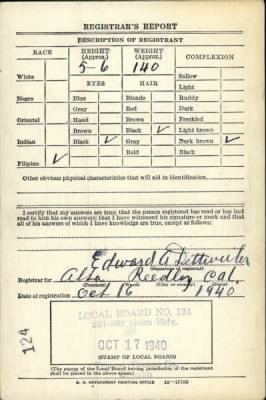 REGISTRAR'S REPORT
DESCRIPTION OF REGISTRANT
RACE HEIGHT (Approx.) WEIGHT (Approx.) COMPLEXION
5-6 140
White Sallow
EYES HAIR Light
Negro Blue Blonde Ruddy
Gray Red Dark
Oriental Hazel Brown Freckled
Brown Black ✓ Light brown
Indian Black ✓ Gray Dark brown ✓
Filipino ✓ Bald Black
Other obvious physical characteristics that will aid in identification
I certify that my answers are true; that the person registered has read or has had
read to him his own answers; that I have witnessed his signature or mark and that
all of his answers of which I have knowledge are true, except as follows:
Edward A Dettweiler
(Signature of registrar)
Registrar for Alta Reedley Cal.
(Precinct) (Ward) (City or county) (State)
Date of registration Oct 16 1940
LOCAL BOARD NO. 124
Bldg.
OCT 17 1940
124
(STAMP OF LOCAL BOARD)
(The stamp of the Local Board having jurisdiction of the registrant
shall be placed in the above space.)
U. S. GOVERNMENT PRINTING OFFICE 16—17105